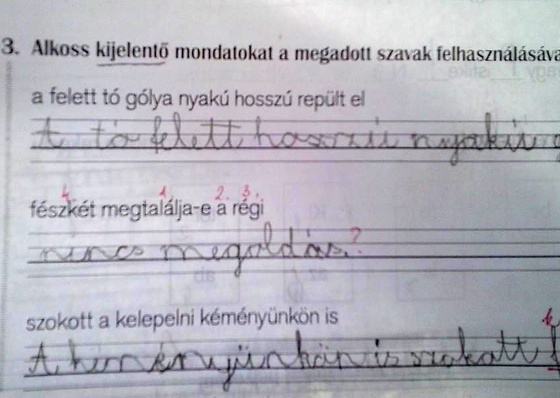 3. Alkoss kijelentő mondatokat a megadott szavak felhasználásáva
a felett tó gólya nyakú hosszú repült el
A tó felett hosszú nyakú
4. 1. 2. 3.
fészkét megtalálja-e a régi
nincs megoldás.?
szokott a kelepelni kéményünkön is
A kéményünkön is szokott